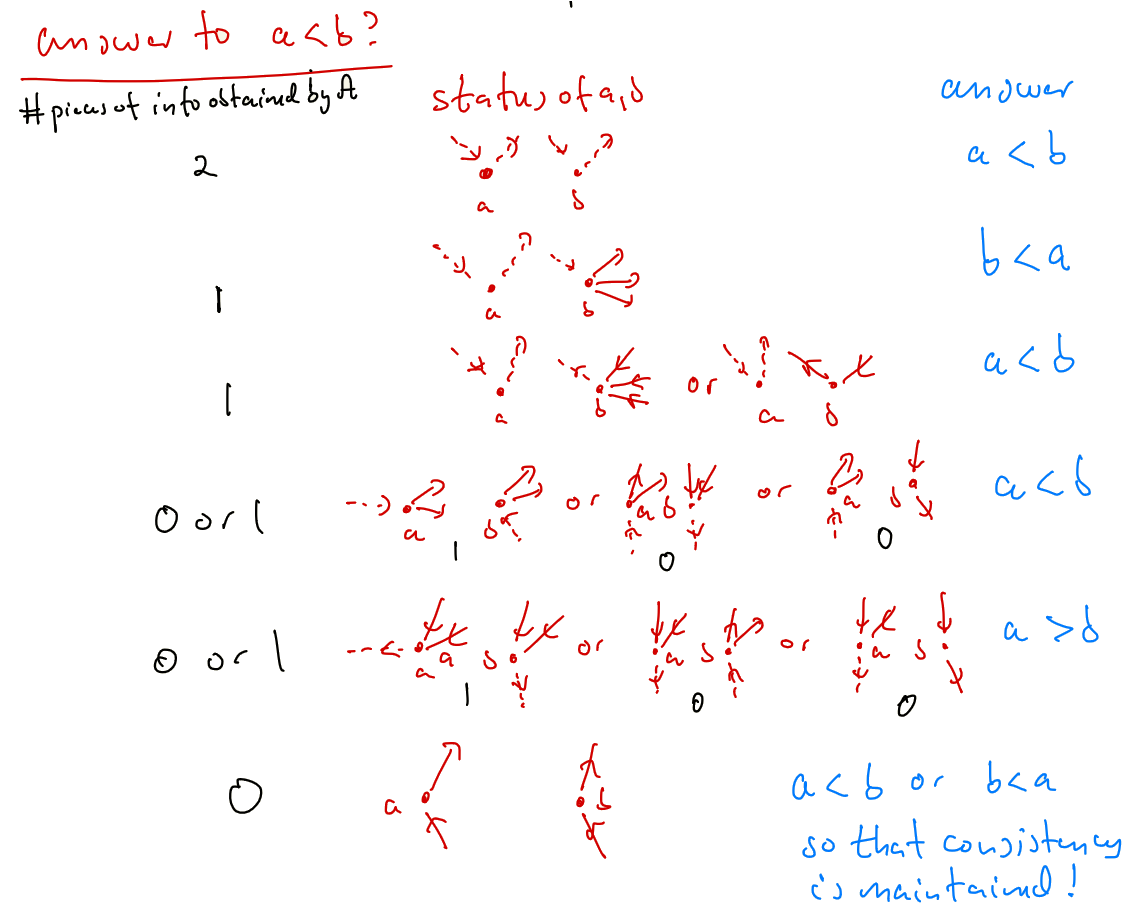 answer to a < b?
# pieces of info obtained by A
status of a, b
answer
2
a b
a < b
1
a b
b < a
1
a b or a b
a < b
0 or 1
a b or a b or a b
a < b
1 0 0
0 or 1
a a b or a b or a b
a > b
1 0 0
0
a b
a < b or b < a
so that consistency
is maintained!